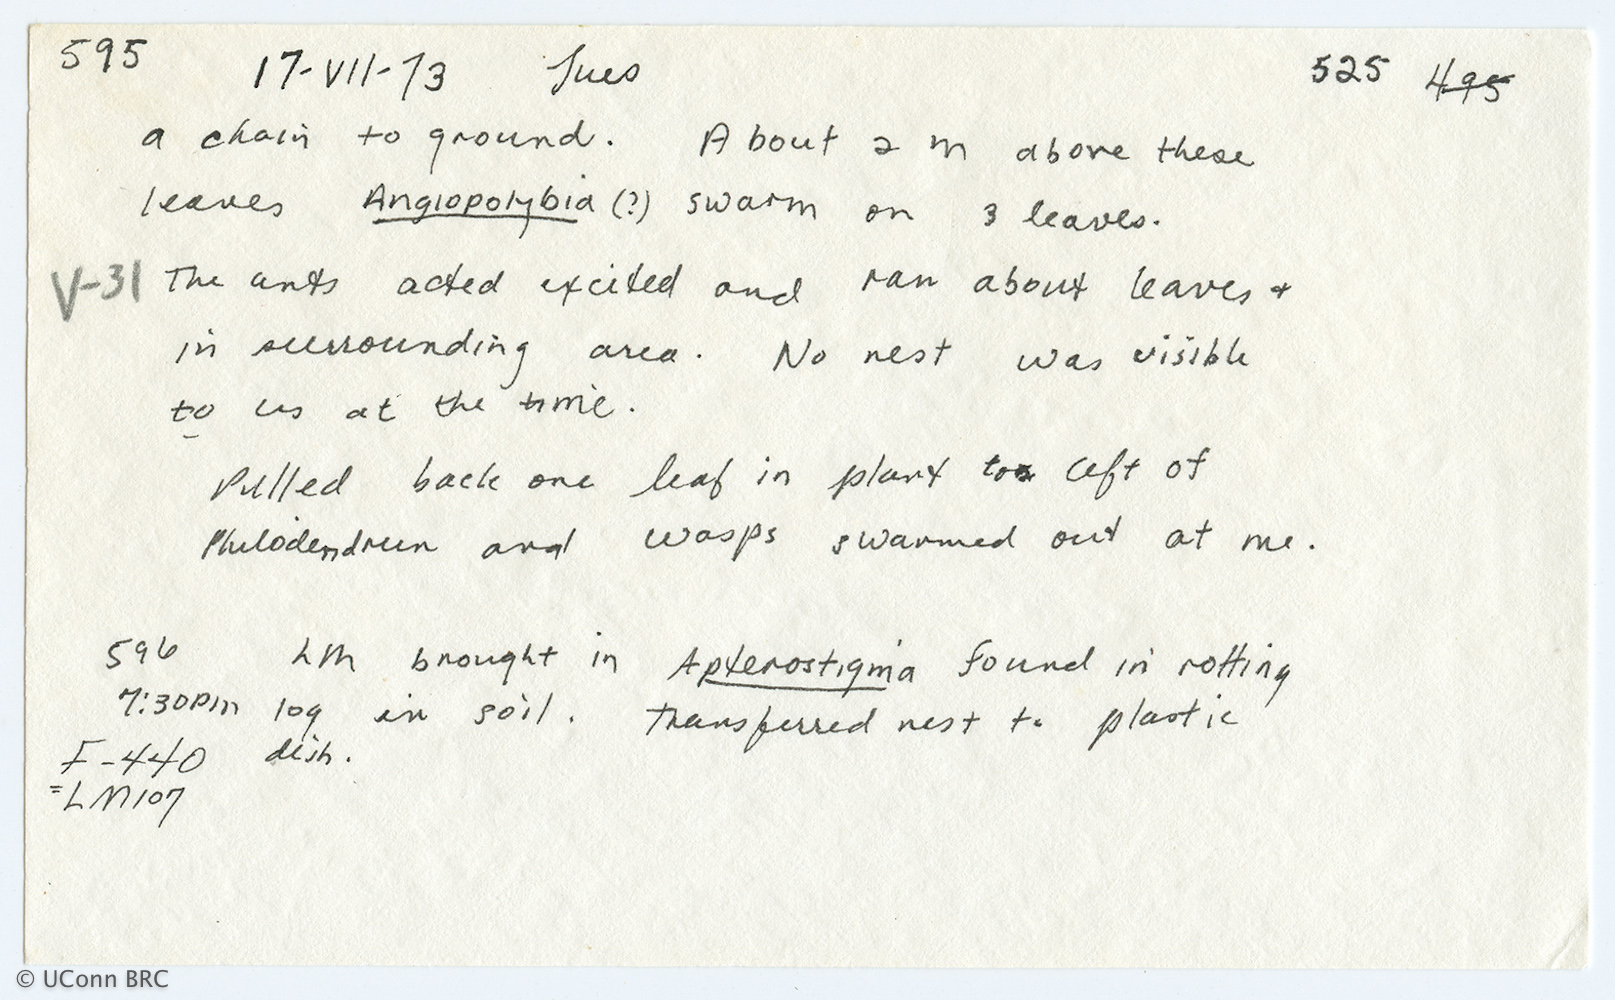 595 17-VII-73 Tues 525 495
a chain to ground. About 2 m above these
leaves Angiopolybia (?) swarm on 3 leaves.
V-31 The ants acted excited and ran about leaves +
in surrounding area. No nest was visible
to us at the time.
Pulled back one leaf in plant to left of
Philodendrun and wasps swarmed out at me.
596 LM brought in Apterostigma found in rotting
7:30pm log in soil. Transferred nest to plastic
F-440 dish.
=LM107
© UConn BRC